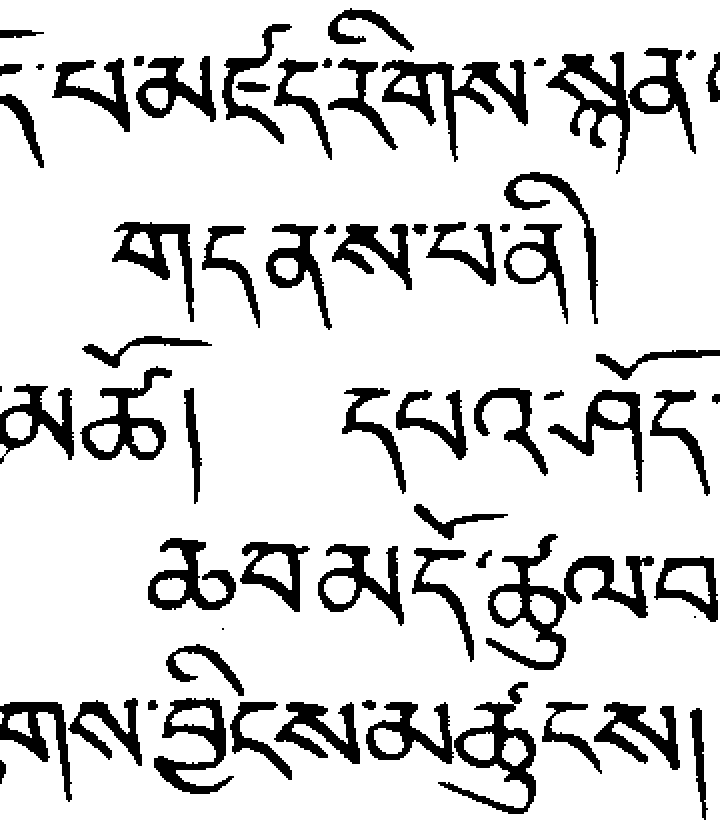 པ་མཛད་རིགས་སྙན་
གདན་ས་པ་ནི།
མཚོ། དཔའ་ཤོད་
ཆབ་མདོ་ཚུལ་བ
གས་བྱིངས་མཚུངས།